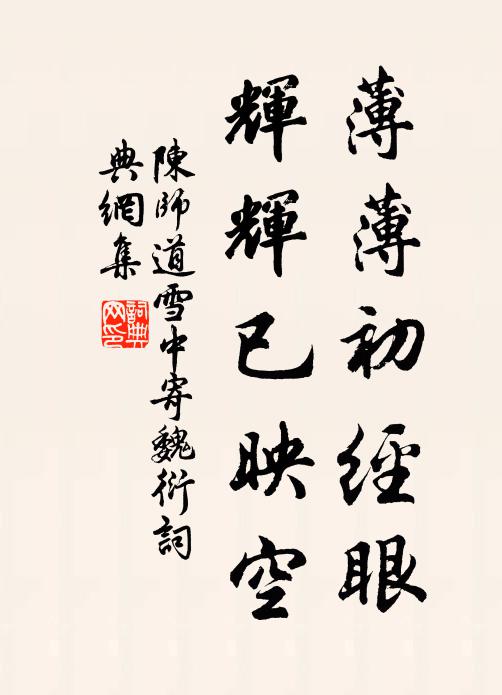 薄薄初經眼
輝輝已映空
陳師道雪中寄魏衍詞
典網集
詞典网印